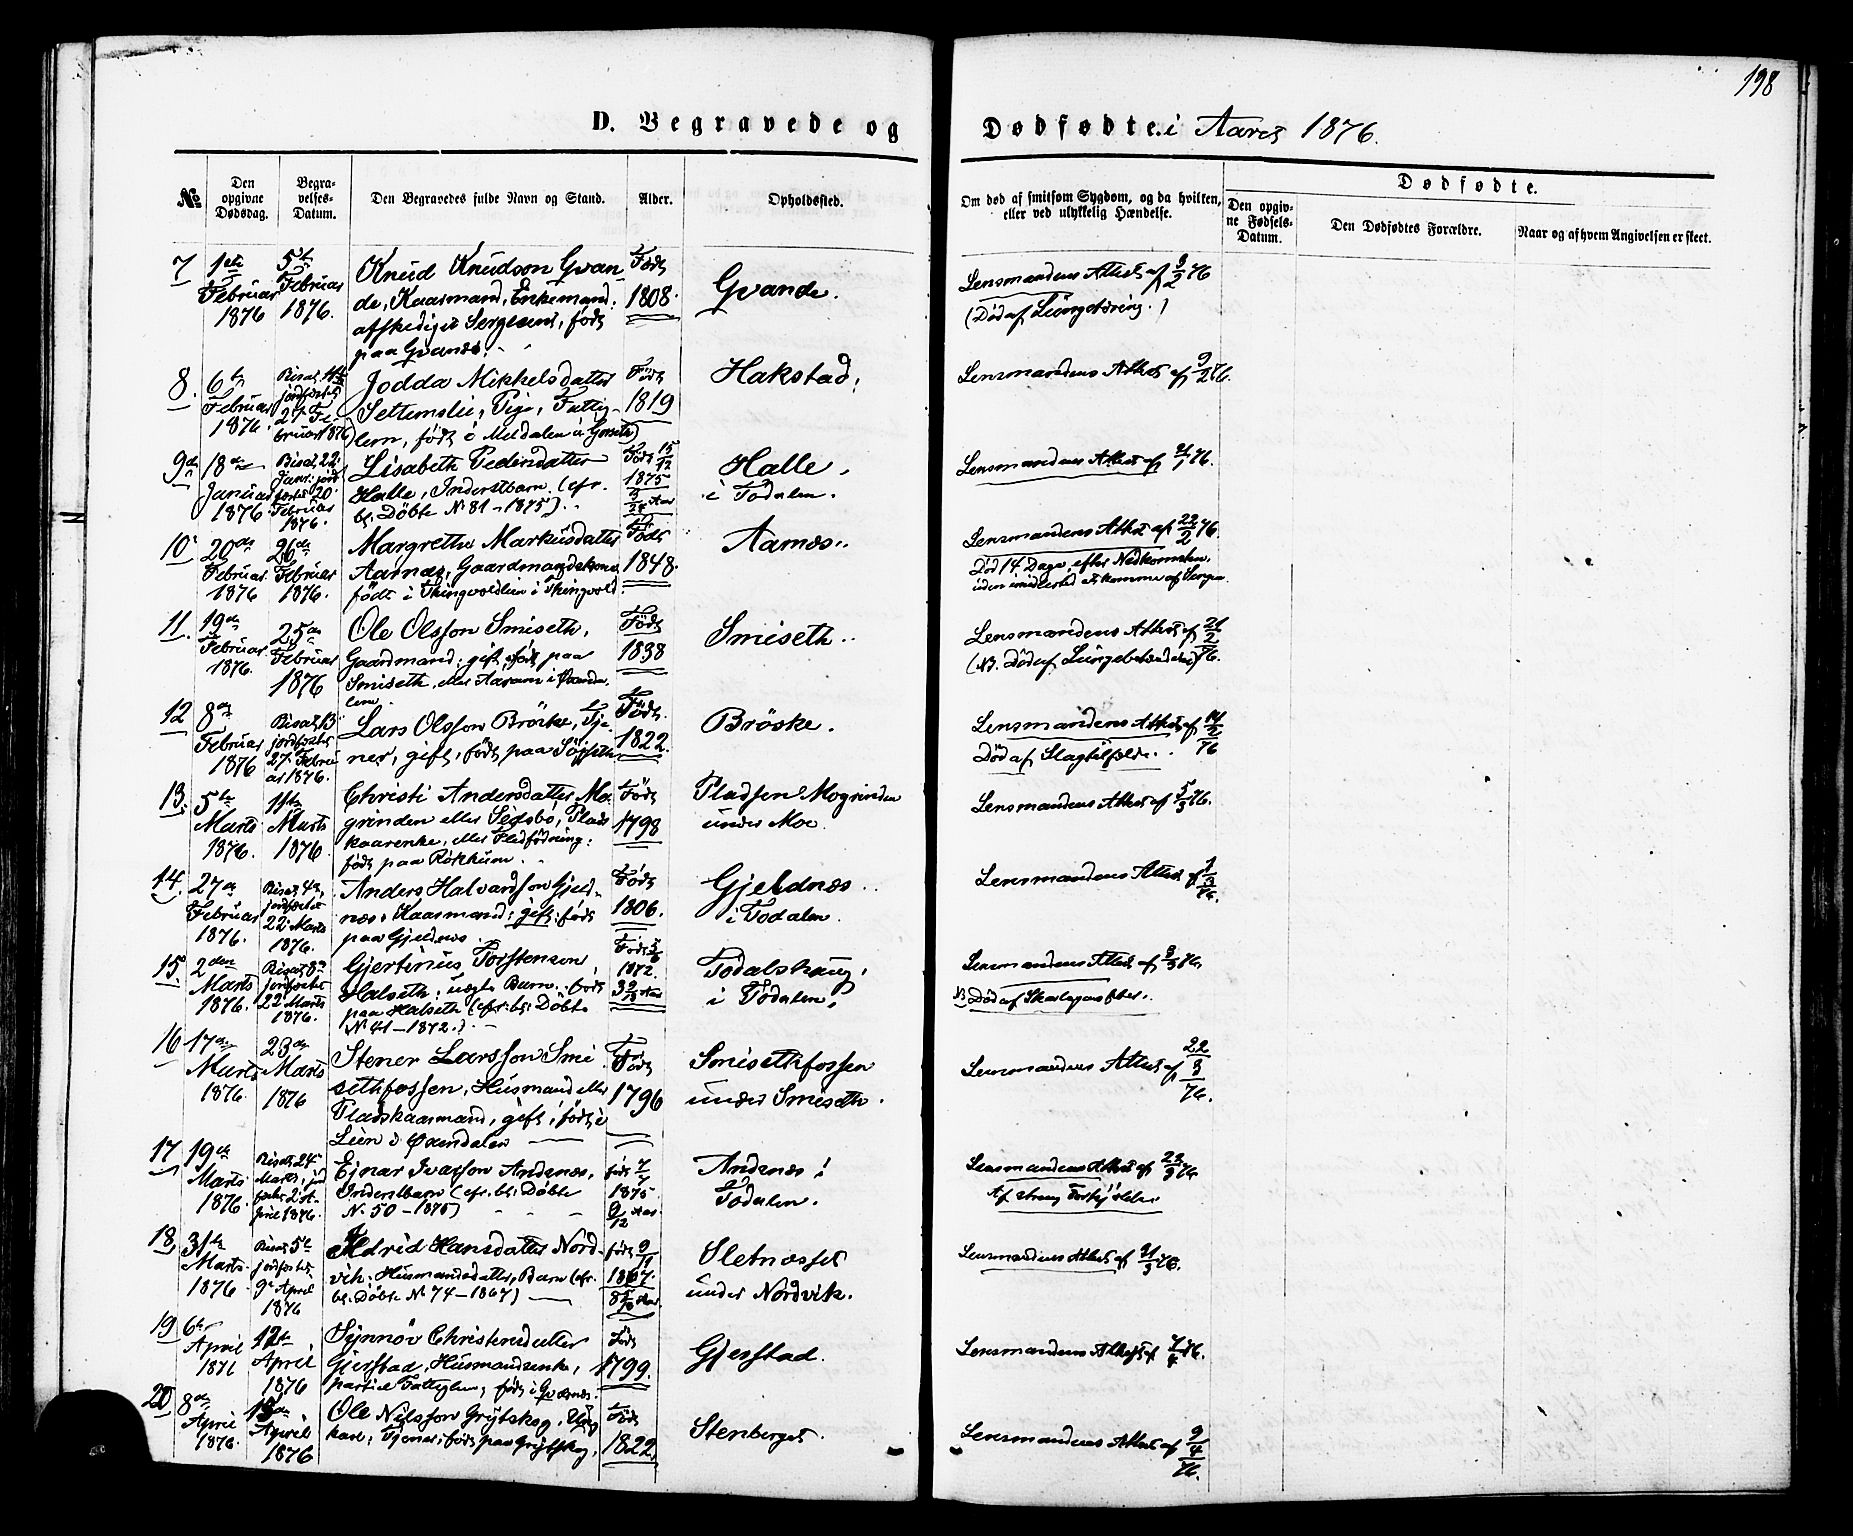 198
D. Begravede og Dødfødte i Aaret 1876.
No.
Den opgivne Dødsdag.
Begravelses-Datum.
Den Begravedes fulde Navn og Stand.
Alder.
Opholdssted.
Om død af smitsom Sygdom, og da hvilken, eller ved ulykkelig Hændelse.
Dødfødte.
Den opgivne Fødsels-Datum.
Den Dødfødtes Forældre.
Naar og af hvem Angivelsen er skeet.
7
1ste Februar 1876
5te Februar 1876.
Knud Knudson Gvan-
de, Kaarmand, Enkemand,
afskediget Sergeant, født
paa Gvanæs.
Født 1808.
Gvande.
Lensmandens Attest af 3/2 76
(Død af Lungetæring.)
8.
6te Februar 1876.
Bisat 11te jordfæstet 27. Februar 1876
Jodda Mikkelsdatter
Settemslie, Pige, Fattig-
lem, født i Meldalen
Født 1819
Hakstad,
Lensmandens Attest af 9/2 76.
9de
18de Januar 1876.
Bisat 22. Januar jordfæstet 20. Februar 1876.
Lisabeth Pedersdatter
Halle, Inderstbarn. (cfr.
bl. Døbte No 81-1875).
Født 15/12 1875
Halle
i Todalen.
Lensmandens Attest af 21/1 76.
10.
20de Februar 1876
26de Februar 1876.
Margrethe Markusdatter
Aarnæs, Gaardmandskone,
født i Thingvoldlien i Thingvold.
Født 1848.
Aarnæs.
Lensmandens Attest af 22/2 76.
Død 14 Dage efter Nedkomsten,
11.
19de Februar 1876.
25de Februar 1876
Ole Olsson Smiseth,
Gaardmand, gift, født paa
Smiseth, eller
Født 1838
Smiseth.
Lensmandens Attest af 21/2 76.
(NB. Død af Lungebetændelse)
12
8de Februar 1876
Bisat 13. jordfæstet 27. Februar 1876.
Lars Olsson Brøske, Tje-
ner, gift, født paa
Født 1822.
Brøske.
Lensmandens Attest af 14/2 76
Død af Slagtilfælde.
13.
5te Marts 1876.
11te Marts 1876
Christi Andersdatter Mo-
grinden eller Sedsbø, Plads
kaarenke, eller Flidfødning:
født paa Røkkum.
Født 1798
Pladsen Mogrinden
under Moe.
Lensmandens Attest af 5/3 76.
14.
27de Februar 1876.
Bisat 4de, jordfæstet 22. Marts 1876.
Anders Halvardsson Gjeld-
næs, Kaarmand, gift, født
paa Gjeldnæs
Født 1806.
Gjeldnæs
i Todalen.
Lensmandens Attest af 1/3 76.
15.
2den Marts 1876.
Bisat 8de jordfæstet 22 Marts 1876.
Gjertinius Torstenson
Halseth, uægte Barn, født
paa Halseth (cfr. bl. Døbte
No 41-1872.)
Født 1872.
Todalshaug,
i Todalen.
Lensmandens Attest af 8/3 76.
NB Død af Skarlagensfeber.
16
17de Marts 1876.
23de Marts 1876
Stener Larsson Smi
sethfossen, Husmand eller
Pladskaarmand, gift, født i
Lien i Øxendalen
Født 1796
Smisethfossen
under Smiseth.
Lensmandens Attest af 22/3 76.
17
19de Marts 1876.
Bisat 24. Marts, jordfæstet 2. April 1876.
Ejnar Ivarsson Andenæs,
Inderstbarn (cfr. bl. Døbte
No 50-1875)
født 7/7 1875
9/12 Aar
Andenæs i
Todalen.
Lensmandens Attest af 23/3 76.
18,
31te Marts 1876.
Bisat 5te jordfæstet 9de April 1876
Aldrid Hansdatter Nord-
vik, Husmandsdatter, Barn (cfr.
bl. Døbte No 74-1867)
født 9/11 1867.
Sletnæsset
under Nordvik.
Lensmandens Attest af 31/3 76.
19
6te April 1876
12te April 1876
Synnøv Christensdatter
Gjerstad, Husmandsenke,
partiel Fattiglem, født i
Født 1799.
Gjerstad.
Lensmandens Attest af 7/4 76.
20
8de April 1876.
15de April 1876
Ole Nilsson Grytskog, Ung
karl, Tjener, født paa Grytskog,
Født 1822,
Stenberget.
Lensmandens Attest af 9/4 76.